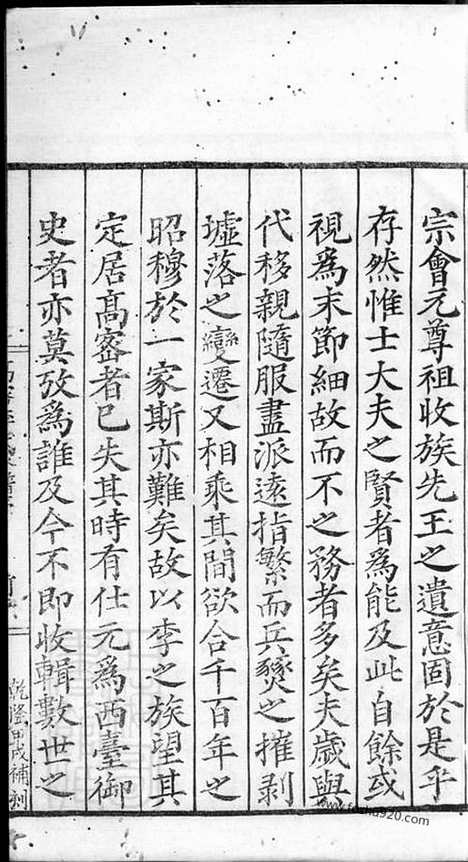 宗會元尊祖收族先王之遺意固於是乎
存然惟士大夫之賢者為能及此自餘或
視為末節細故而不之務者多矣夫歲與
代移親隨服盡派遠指繁而兵燹之摧剥
墟落之變遷又相乘其間欲合千百年之
昭穆於一家斯亦難矣故以李之族望其
定居高密者已失其時有仕元為西臺御
史者亦莫攷為誰及今不即收輯數世之
乾隆甲戌補刻
www.fosha920.com